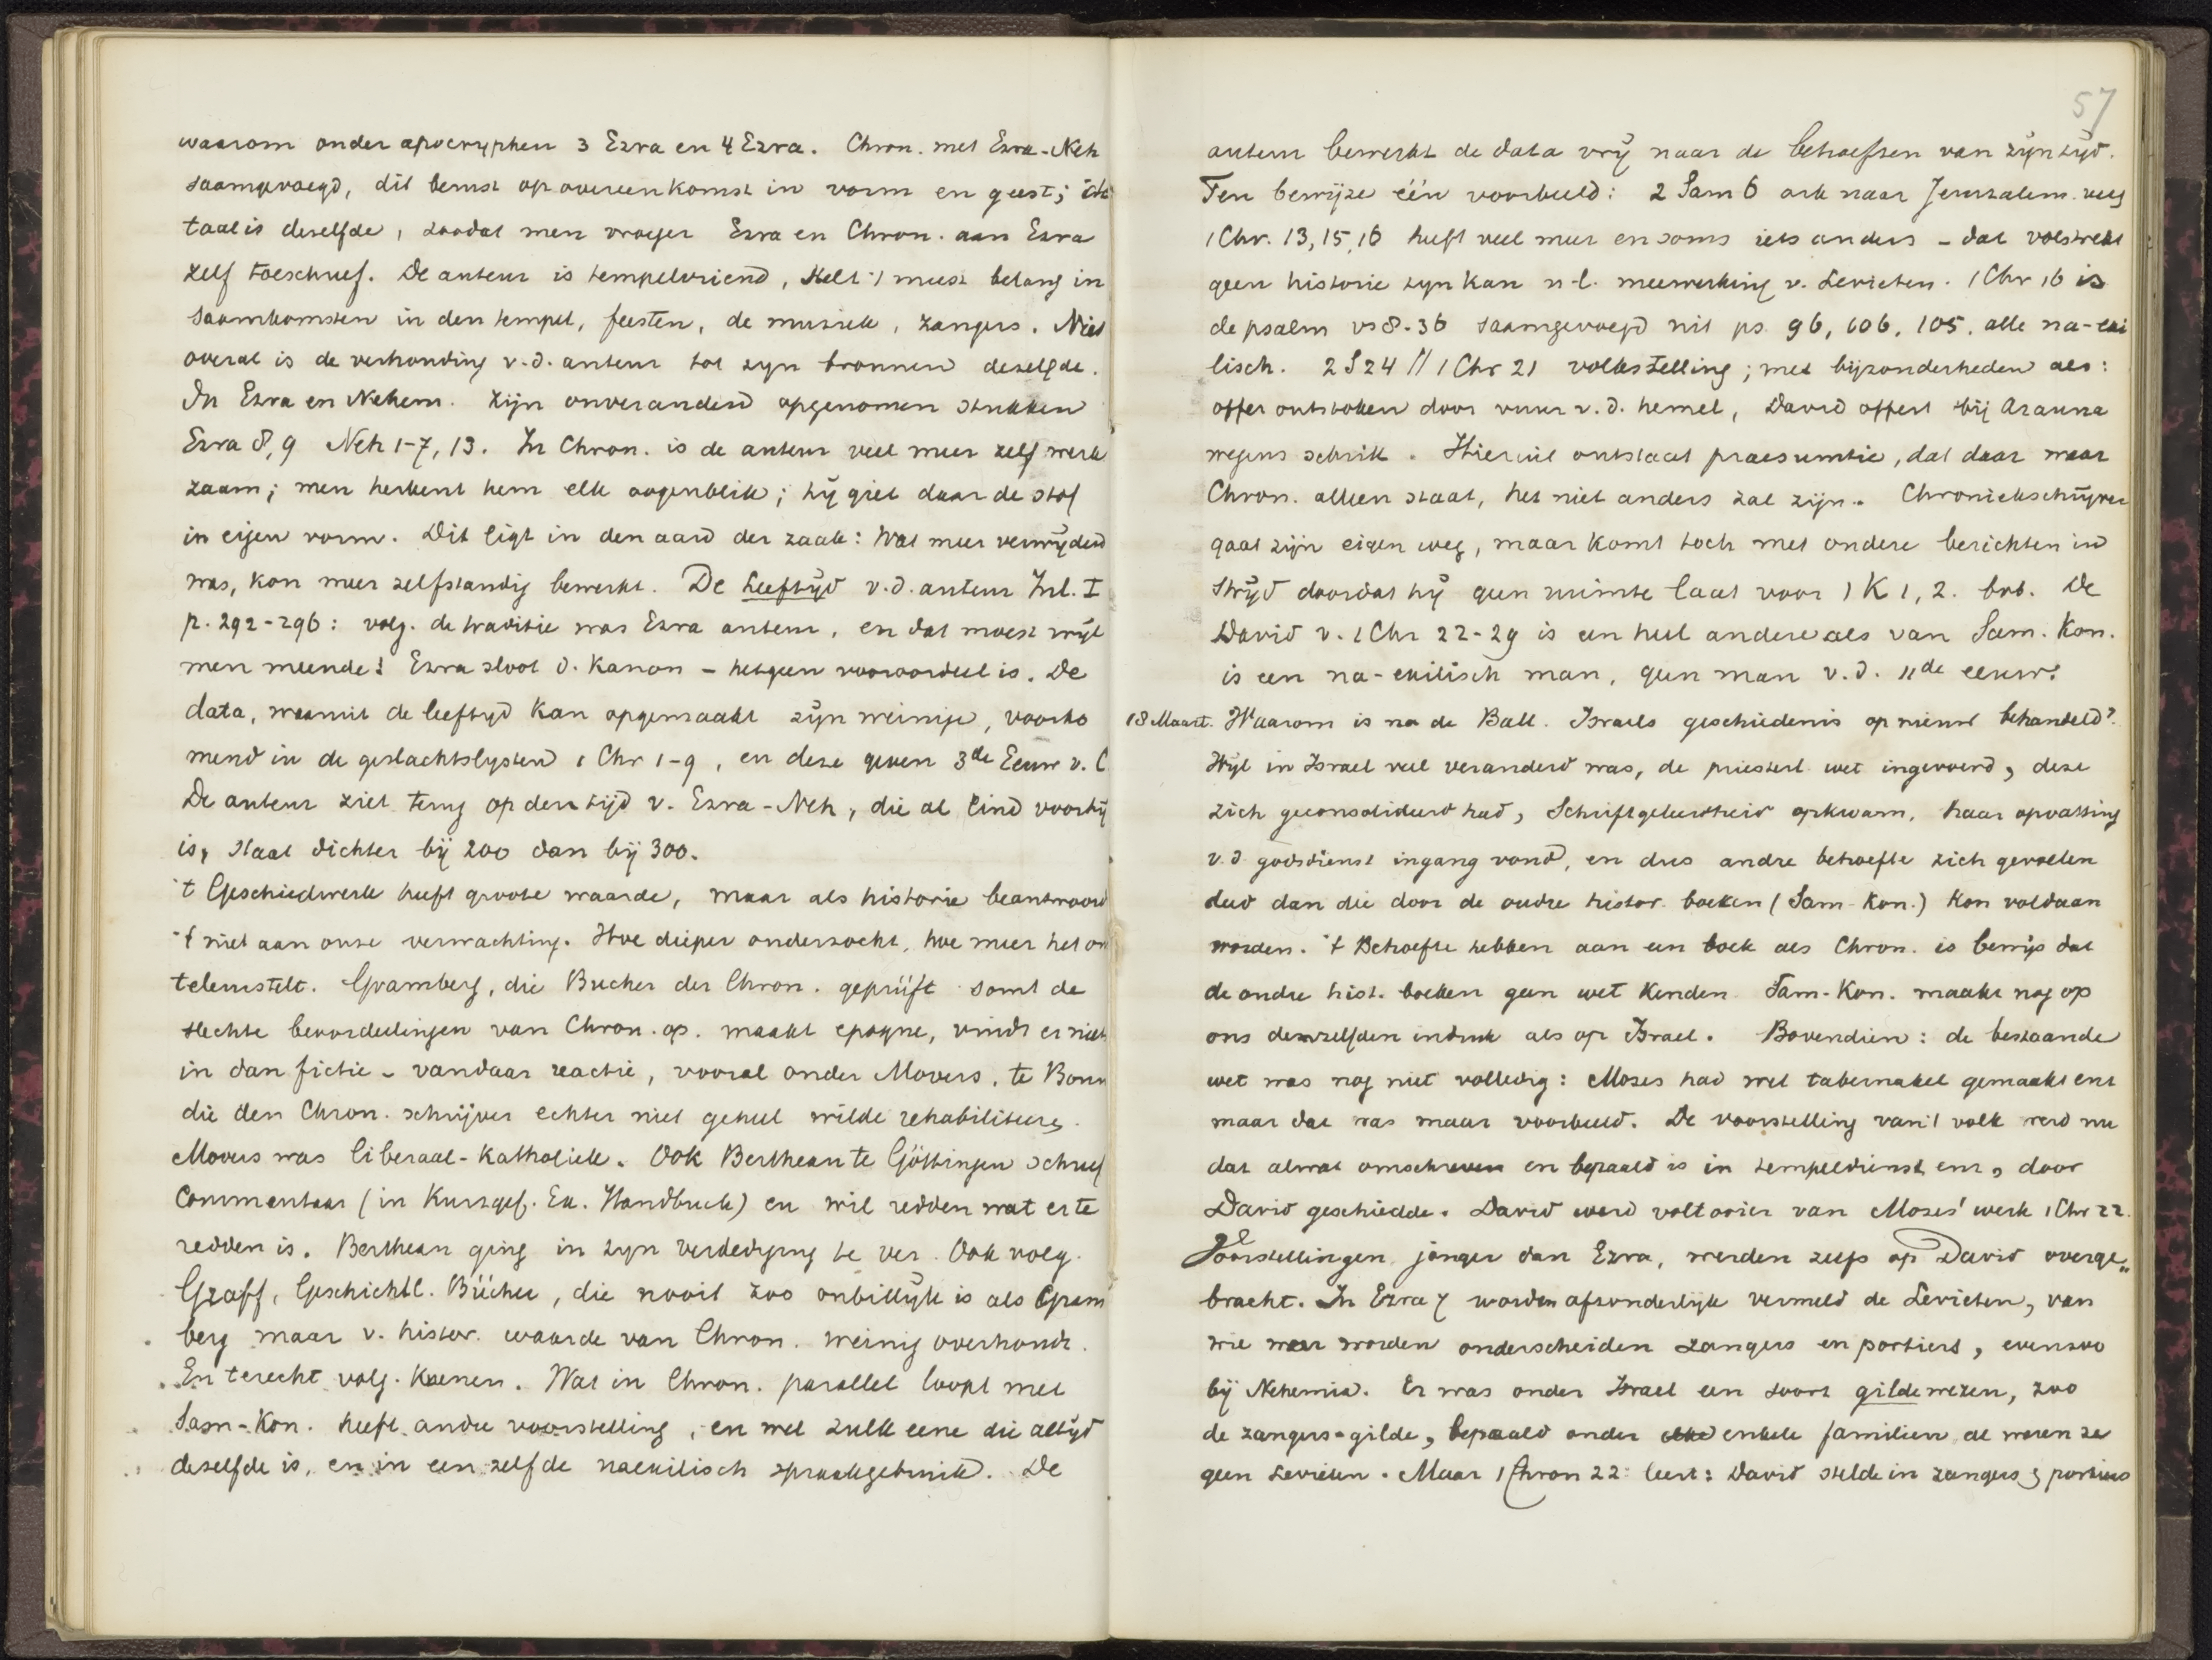 waarom onder apocryphen 3 Ezra en 4 Ezra. Chron. met Ezra-Neh
saamgevoegd, dit berust op overeenkomst in vorm en geest; de
taal is deselfde, zoodat men vroeger Ezra en Chron. aan Ezra
zelf toeschreef. De auteur is tempelvriend, stelt 't meest belang in
saamkomsten in den tempel, feesten, de muziek, zangers. Niet
overal is de verhouding v.d. auteur tot zyn bronnen dezelfde.
In Ezra en Nehem. zijn onveranderd opgenomen stukken
Ezra 8, 9 Neh 1-7, 13. In Chron. is de auteur veel meer zelf werk
zaam; men herkent hem elk oogenblik; hij giet daar de stof
in eigen vorm. Dit ligt in den aard der zaak: Wat meer verwijderd
was, kon meer zelfstandig bewerkt. De leeftijd v.d. auteur Inl. I
p. 292-296: volg. de traditie was Ezra auteur, en dat moest wijl
men meende: Ezra sloot d. Kanon - hetgeen vooroordeel is. De
data, waaruit de leeftyd kan opgemaakt zijn weinige, voorko
mend in de geslachtslysten 1 Chr 1-9, en deze geven 3de Eeuw v. C
De auteur ziet terug op den tijd v. Ezra-Neh, die al lind voorbij
is, staat dichter bij 200 dan bij 300.
't Geschiedwerk heeft groote waarde, maar als historie beantwoord
't niet aan onze verwachting. Hoe dieper onderzocht, hoe meer het on
telerstelt. Gramberg, die Bucher der Chron. geprüft somt de
slechte beoordeelingen van Chron. op. maakt epoque, vindt er niets
in dan fictie - vandaar reactie, vooral onder Movers, te Bonn
die den Chron. schrijver echter niet geheel wilde rehabiliteeren.
Movers was liberaal-Katholiek. Ook Bertheau te Göttingen schreef
Commentaar (in Kurzgef. Ex. Handbuch) en wil redden wat er te
redden is. Bertheau ging in zyn verdediging te ver. Ook volg.
Graff, Geschichtl. Bücher, die nooit zoo onbillijk is als Gram
berg maar v. histor. waarde van Chron. weinig overhoudt.
En terecht volg. Kuenen. Wat in Chron. parallel loopt met
Sam-Kon. heeft andre voorstelling, en wel zulk eene die altijd
dezelfde is, en in een zelfde naexilisch spraakgebruik. De
57
auteur bewerkt de data vrij naar de behoeften van zijn tijd.
Ten bewijze één voorbeeld: 2 Sam 6 ark naar Jeruzalem.
1 Chr. 13, 15, 16 heeft veel meer en soms iets anders - dat volstrekt
geen historie zyn kan n-l. meewerking v. Levieten. 1 Chr 16 is
de psalm vs 8-36 saamgevoegd uit ps. 96, 106, 105. alle na-exi
lisch. 2 S 24 // 1 Chr 21 volkstelling; met bijzonderheden als:
offer ontstoken door vuur v.d. hemel, David offert bij Arauna
wegens schrik. Hieruit ontstaat praesumtie, dat daar waar
Chron. alleen staat, het niet anders zal zijn. Chroniekschrijver
gaat zijn eigen weg, maar komt toch met oudere berichten in
strijd doordat hij geen ruimte laat voor 1 K 1, 2. bvb. De
David v. 1 Chr 22-29 is een heel andere als van Sam. Kon.
is een na-exilisch man, geen man v.d. 11de eeuw.
18 Maart. Waarom is na de Ball. Israels geschiedenis op nieuw behandeld?
Wijl in Israel veel veranderd was, de priesterl. wet ingevoerd, deze
zich geconsolideerd had, Schriftgeleerdheid opkwam, haar opvatting
v.d. godsdienst ingang vond, en dus andre behoefte zich gevoelen
deed dan die door de oudre histor. boeken (Sam-Kon.) kon voldaan
worden. 't Behoefte hebben aan een boek als Chron. is bewijs dat
de oudre hist. boeken geen wet kenden. Sam-Kon. maakt nog op
ons denzelfden indruk als op Israel. Bovendien: de bestaande
wet was nog niet volledig: Mozes had wel tabernakel gemaakt enz
maar dat was maar voorbeeld. De voorstelling van 't volk werd nu
dat alwat omschreven en bepaald is in tempeldienst enz, door
David geschiedde. David werd voltooier van Mozes' werk 1 Chr 22.
Voorstellingen, jonger dan Ezra, werden zelfs op David overge„
bracht. In Ezra 7 worden afzonderlijk vermeld de Levieten, van
wie weer worden onderscheiden zangers en portiers, evenzoo
bij Nehemia. Er was onder Israel een soort gildewezen, zoo
de zangers-gilde, bepaald onder enkele familien al waren ze
geen Levieten. Maar 1 Chron 22 leert: David stelde in zangers & portiers